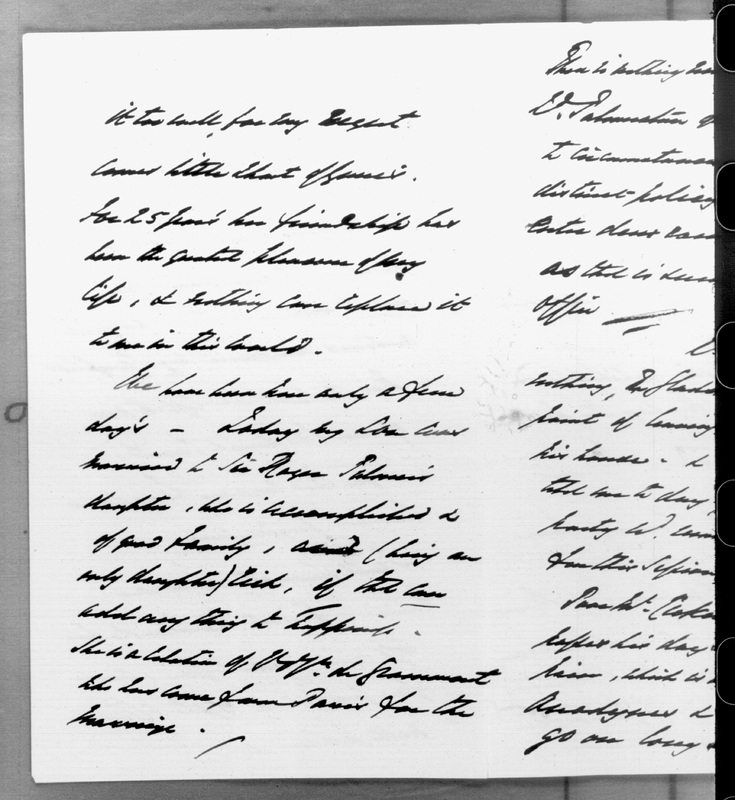 it too well, for my regret
comes little short of yours.
For 25 years her friendship has
been the greatest pleasure of my
life, & nothing can replace it
to me in this world.
We have been here only a few
days — Today my Son was
married to Sir Roger Palmer's
daughter, who is accomplished &
of good family, and (being an
only daughter) rich, if that can
add any thing to happiness.
She is a relation of de Grammont
who has come from Paris for the
marriage.
There is nothing
Ld. Palmerston
to circumstances
distinct policy
as that is
office
nothing, Mr Glads
point of leaving
his house - &
told me to day,
party wd.
for this Session
Poor Mr.
his day
him, which is
Anodynes &
go on long